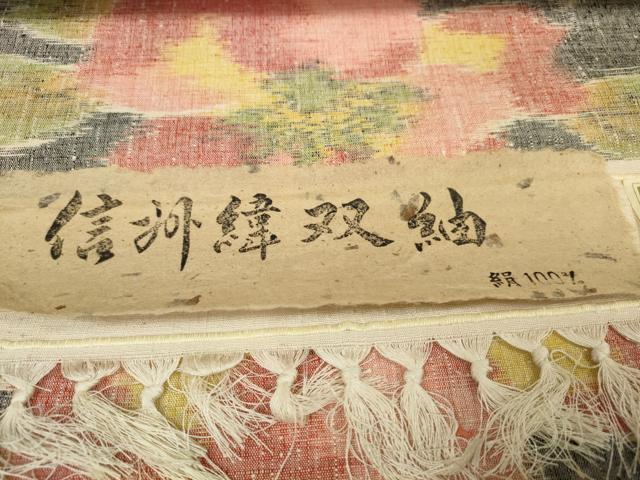 信州緯双紬
絹100%